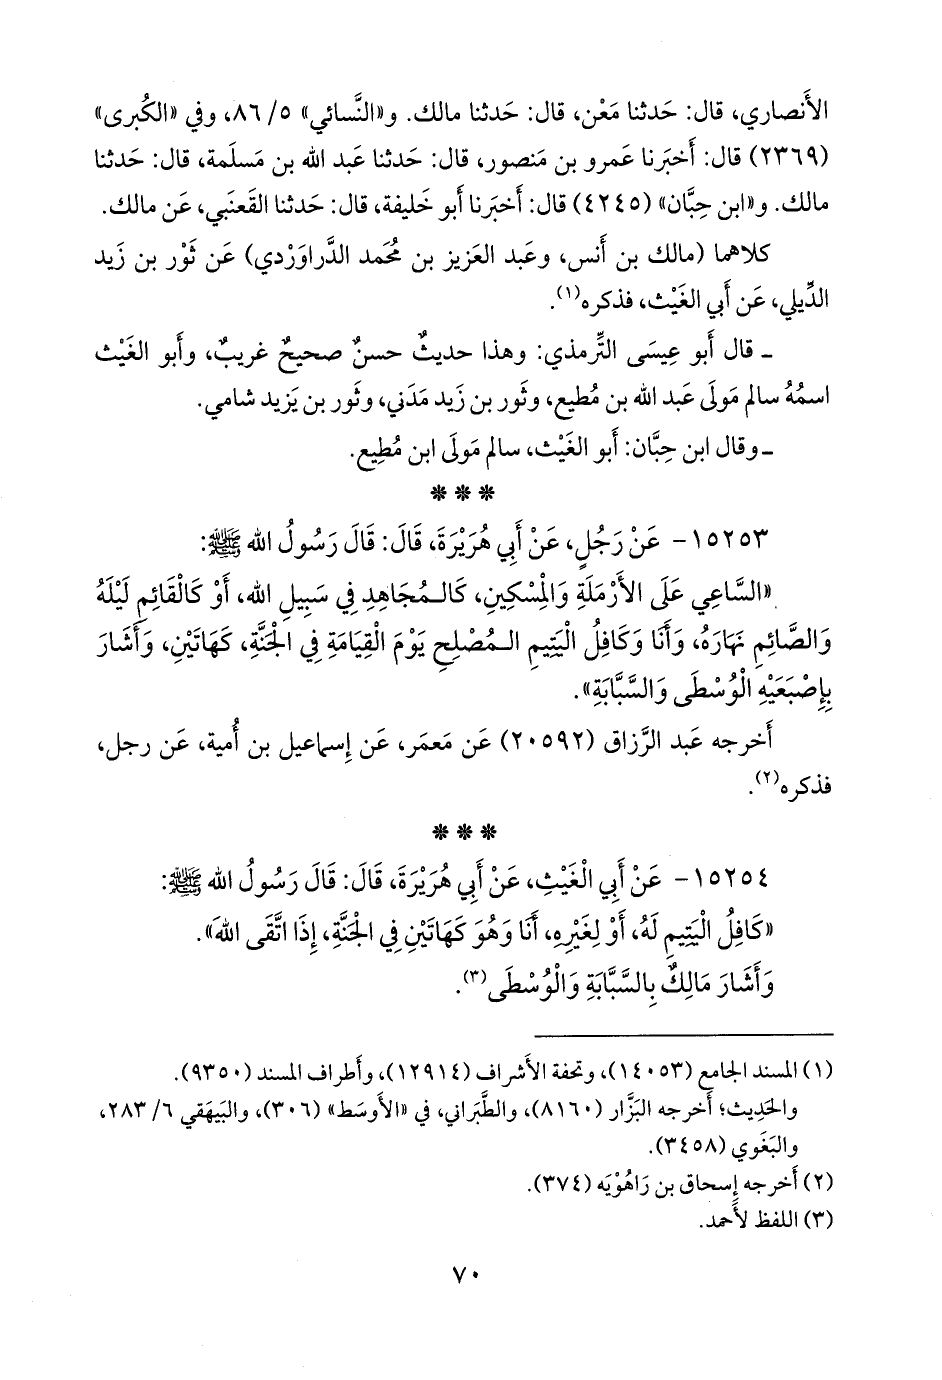 الأَنصاري، قال: حَدثنا مَعْن، قال: حَدثنا مالك. و«النَّسائي» ٥/ ٨٦، وفي «الكُبرى»
(٢٣٦٩) قال: أَخبَرنا عَمرو بن مَنصور، قال: حَدثنا عَبد الله بن مَسلَمة، قال: حَدثنا
مالك. و«ابن حِبَّان» (٤٢٤٥) قال: أَخبَرنا أَبو خَليفة، قال: حَدثنا القَعنَبي، عَن مالك.
كلاهما (مالك بن أَنس، وعَبد العَزيز بن مُحمد الدَّراوَرْدي) عَن ثَوْر بن زَيد
الدِّيلي، عَن أَبي الغَيْث، فذكره(١).
ـ قال أَبو عِيسَى التِّرمذي: وهذا حديثٌ حسنٌ صحيحٌ غريبٌ، وأَبو الغَيْث
اسمُهُ سالم مَولَى عَبد الله بن مُطيع، وثَور بن زَيد مَدَني، وثَور بن يَزيد شامي.
ـ وقال ابن حِبَّان: أَبو الغَيْث، سالم مَولَى ابن مُطِيع.
* * *
١٥٢٥٣- عَنْ رَجُلٍ، عَنْ أَبِي هُرَيْرَةَ، قَالَ: قَالَ رَسُولُ الله ﷺ:
«السَّاعِي عَلَى الأَرْمَلَةِ وَالمِسْكِينِ، كَالـمُجَاهِدِ فِي سَبِيلِ الله، أَوْ كَالْقَائِمِ لَيْلَهُ
وَالصَّائِمِ نَهَارَهُ، وَأَنَا وَكَافِلُ الْيَتِيمِ الـمُصْلِحِ يَوْمَ الْقِيَامَةِ فِي الجَنَّةِ، كَهَاتَيْنِ، وَأَشَارَ
بِإِصْبَعَيْهِ الْوُسْطَى وَالسَّبَّابَةِ».
أَخرجه عَبد الرَّزاق (٢٠٥٩٢) عَن مَعمَر، عَن إِسماعيل بن أُمية، عَن رجل،
فذكره(٢).
* * *
١٥٢٥٤- عَنْ أَبِي الْغَيْثِ، عَنْ أَبِي هُرَيْرَةَ، قَالَ: قَالَ رَسُولُ الله ﷺ:
«كَافِلُ الْيَتِيمِ لَهُ، أَوْ لِغَيْرِهِ، أَنَا وَهُوَ كَهَاتَيْنِ فِي الجَنَّةِ، إِذَا اتَّقَى اللهَ».
وَأَشَارَ مَالِكٌ بِالسَّبَّابَةِ وَالْوُسْطَى(٣).
(١) المسند الجامع (١٤٠٥٣)، وتحفة الأَشراف (١٢٩١٤)، وأَطراف المسند (٩٣٥٠).
والحَدِيث؛ أَخرجه البَزَّار (٨١٦٠)، والطَّبَراني، في «الأَوسَط» (٣٠٦)، والبَيهَقي ٦/ ٢٨٣،
والبَغَوي (٣٤٥٨).
(٢) أَخرجه إِسحاق بن رَاهُوْيَه (٣٧٤).
(٣) اللفظ لأَحمد.
٧٠